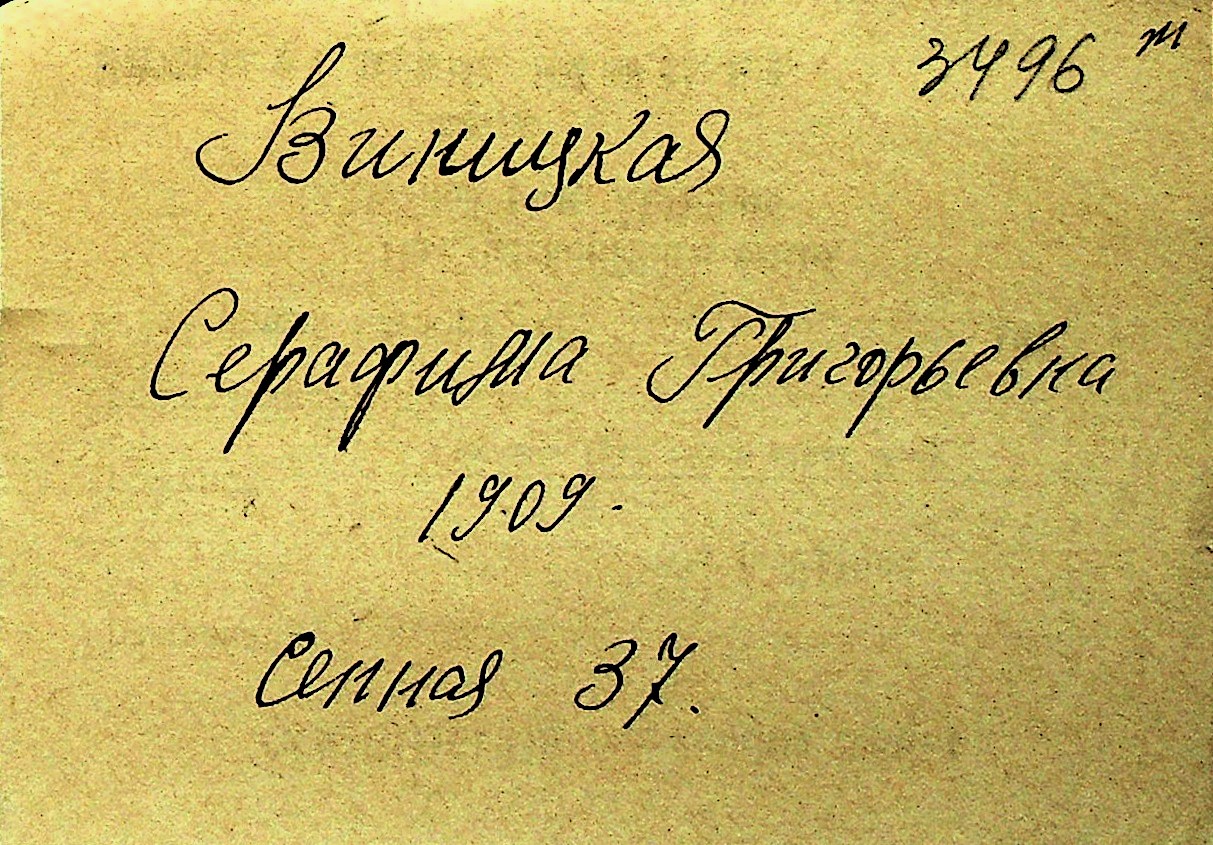 3496 т
Виницкая
Серафима Григорьевна
1909.
Сенная 37.